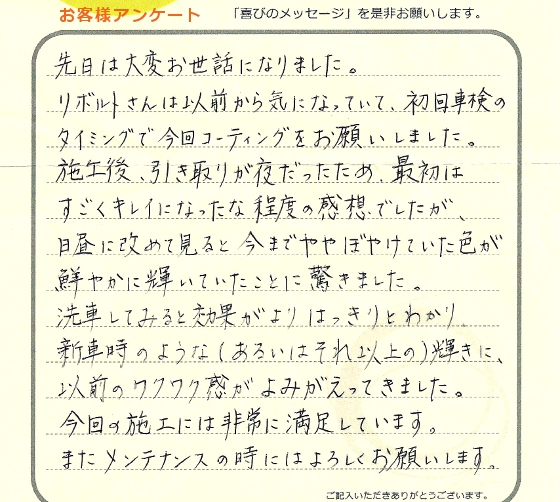 お客様アンケート 「喜びのメッセージ」を是非お願いします。
先日は大変お世話になりました。
リボルトさんは以前から気になっていて、初回車検の
タイミングで今回コーティングをお願いしました。
施工後、引き取りが夜だったため、最初は
すごくキレイになったな程度の感想でしたが、
日昼に改めて見ると今までややぼやけていた色が
鮮やかに輝いていたことに驚きました。
洗車してみると効果がよりはっきりとわかり、
新車時のような(あるいはそれ以上の)輝きに、
以前のワクワク感がよみがえってきました。
今回の施工には非常に満足しています。
またメンテナンスの時にはよろしくお願いします。
ご記入いただきありがとうございます。